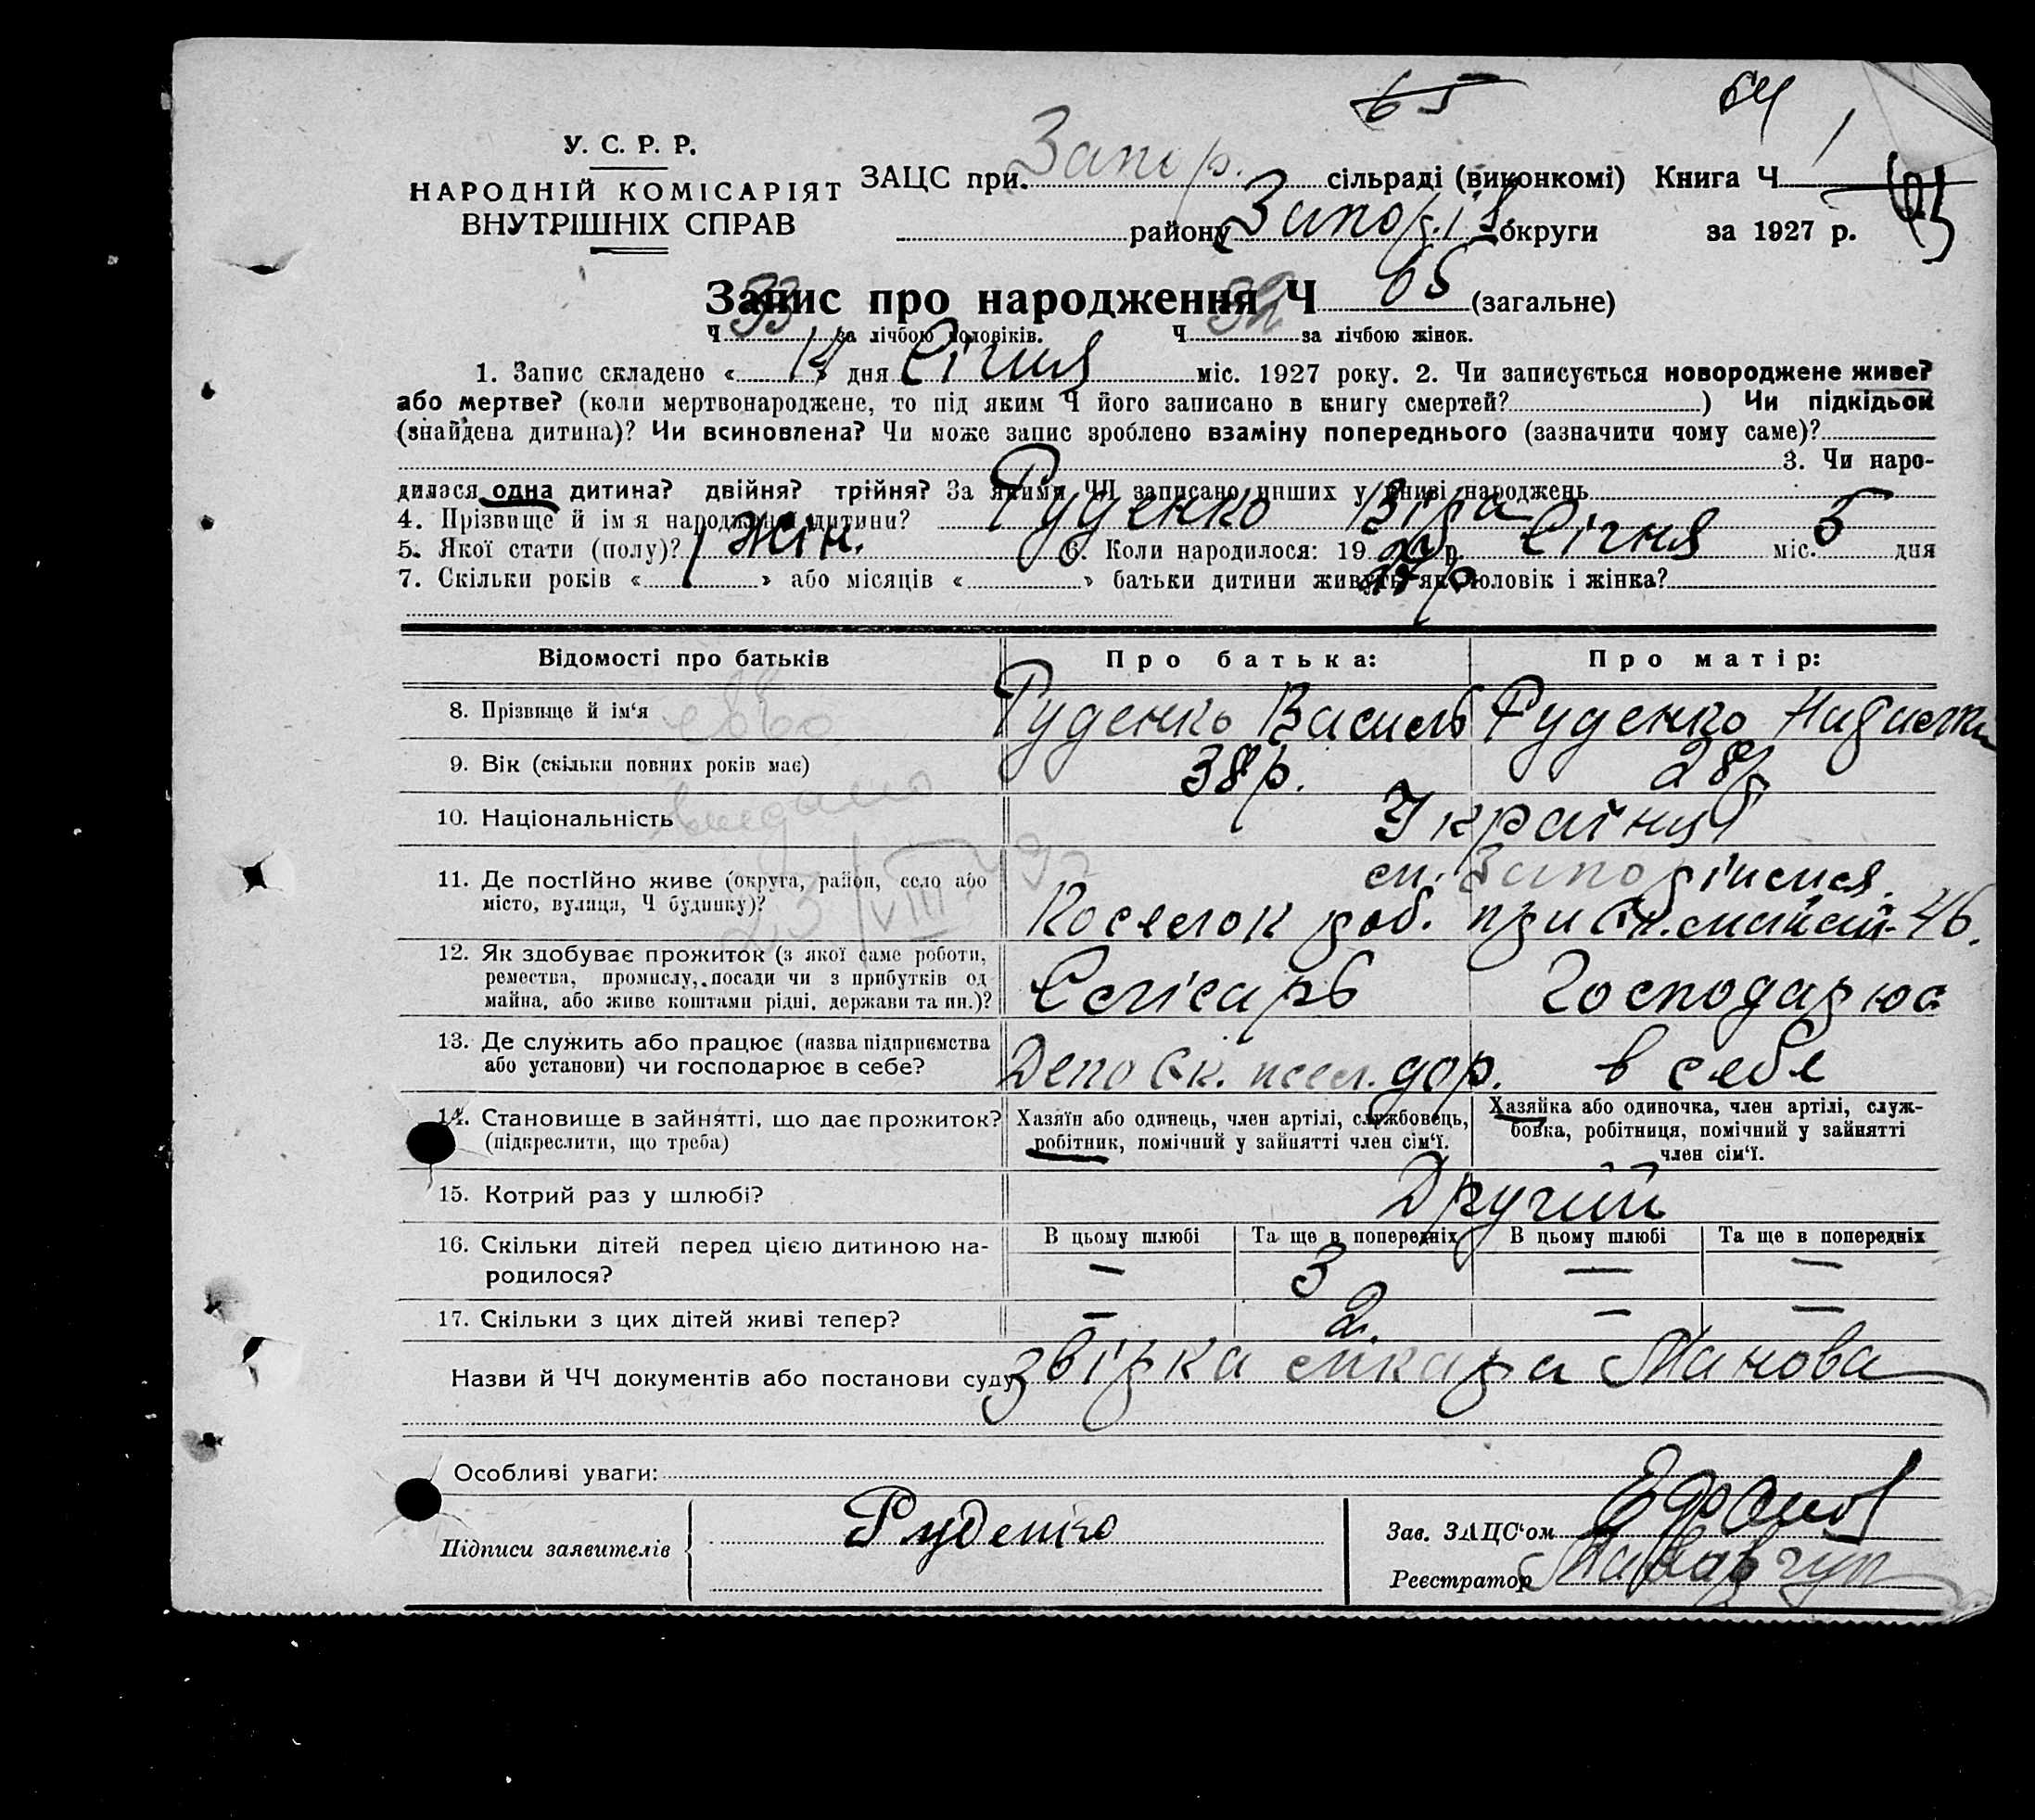 65 64
У. С. Р. Р.
НАРОДНІЙ КОМІСАРІЯТ
ВНУТРІШНІХ СПРАВ
ЗАЦС при Запор. сільраді (виконкомі) Книга Ч 1
району Запоріз. округи за 1927 р.
Запис про народження Ч 65 (загальне)
Ч 33 за лічбою чоловіків. Ч 32 за лічбою жінок.
1. Запис складено « » дня Січня міс. 1927 року. 2. Чи записується новороджене живе?
або мертве? (коли мертвонароджене, то під яким Ч його записано в книгу смертей? ) Чи підкідьок
(знайдена дитина)? Чи всиновлена? Чи може запис зроблено взаміну попереднього (зазначити чому саме)?
3. Чи наро-
дилася одна дитина? двійня? трійня? За якими ЧЧ записано инших у книзі народжень
4. Прізвище й ім я народженої дитини? Руденко Віра
5. Якої стати (полу)? Жін. 6. Коли народилося: 19 р. Січня міс. 5 дня
7. Скільки років « » або місяців « » батьки дитини живуть як чоловік і жінка?
27 р
Відомості про батьків Про батька: Про матір:
8. Прізвище й ім‘я Руденко Василь Руденко
9. Вік (скільки повних років має) 38 р. 28 р
10. Національність Українці
11. Де постійно живе (округа, район, село або
місто, вулиця, Ч будинку)?
ст. Запоріжжя
Поселок роб. при 46.
12. Як здобуває прожиток (з якої саме роботи,
ремества, промислу, посади чи з прибутків од
майна, або живе коштами рідні, держави та ин.)?
Слісарь Господарює
13. Де служить або працює (назва підприємства
або установи) чи господарює в себе?
Депо Єк. дор. в себе
14. Становище в зайнятті, що дає прожиток?
(підкреслити, що треба)
Хазяїн або одинець, член артілі, службовець,
робітник, помічний у зайнятті член сім‘ї.
Хазяйка або одиночка, член артілі, служ-
бовка, робітниця, помічний у зайнятті
член сім‘ї.
15. Котрий раз у шлюбі? Другий
16. Скільки дітей перед цією дитиною на-
родилося?
В цьому шлюбі Та ще в попередніх В цьому шлюбі Та ще в попередніх
— 3 — —
17. Скільки з цих дітей живі тепер? — 2. — —
Назви й ЧЧ документів або постанови суду звірка лікаря Панова
Особливі уваги:
Підписи заявителів Руденко
Зав. ЗАЦС‘ом
Реєстратор